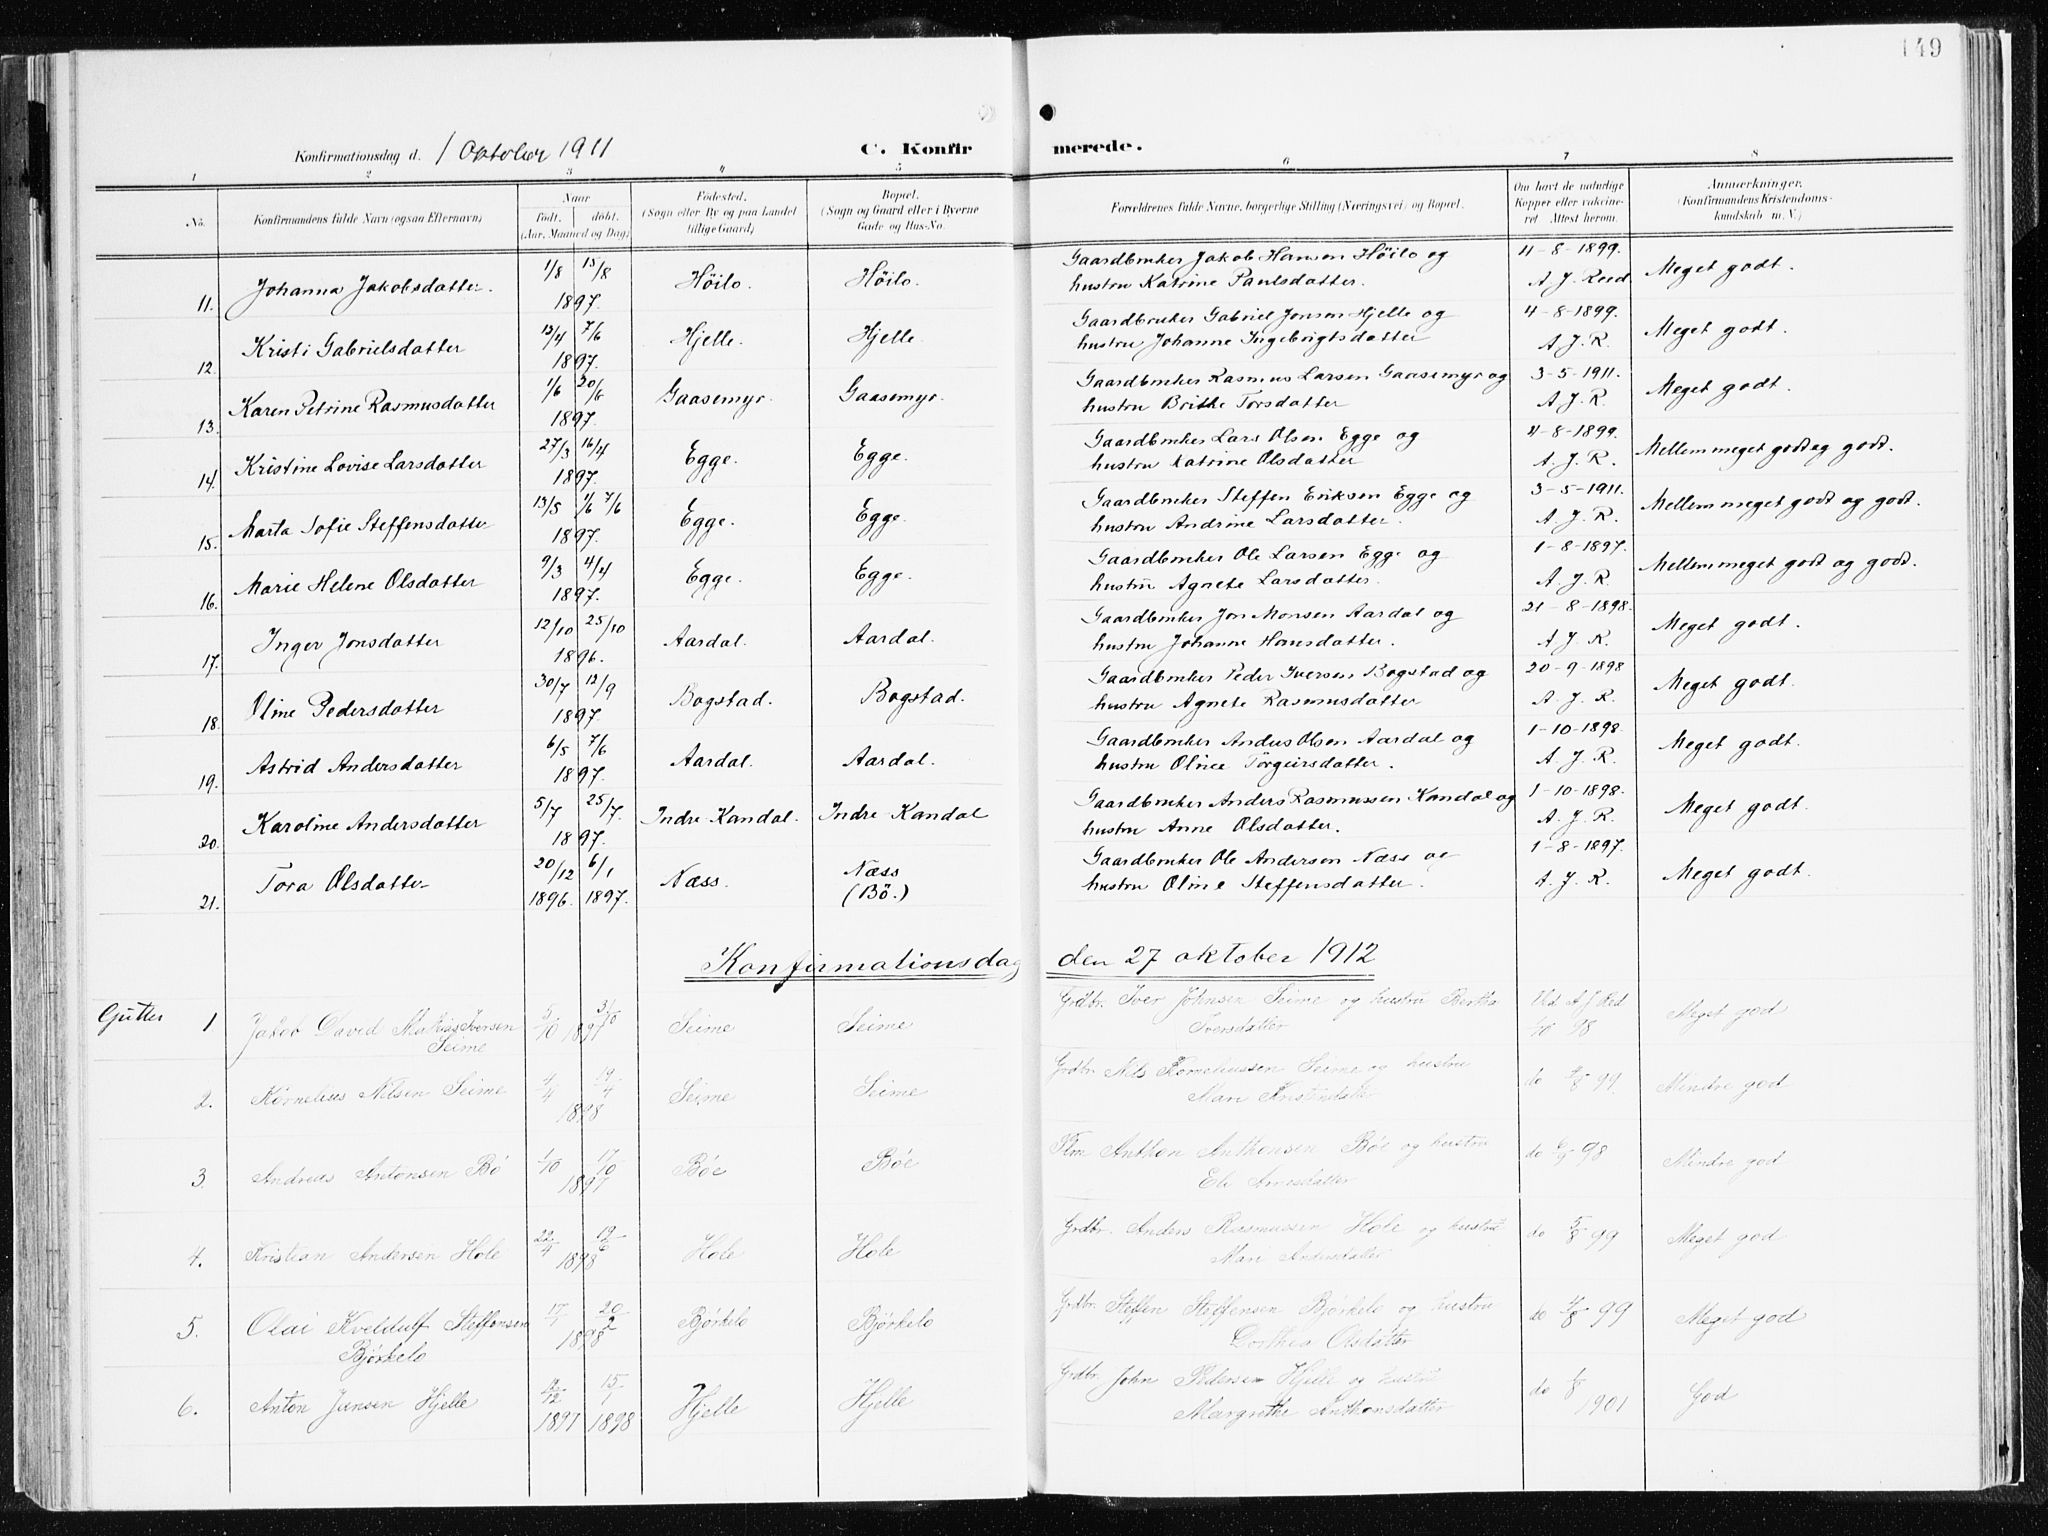 149
Konfirmationsdag d. 1 Oktober 1911 C. Konfirmerede.
1 2 3 4 5 6 7 8
No. Konfirmandens fulde Navn (ogsaa Efternavn) Naar født. døbt. (Aar, Maaned og Dag) Fødested. (Sogn eller By og paa Landet tillige Gaard) Bopæl. (Sogn og Gaard eller i Byerne Gade og Hus-No. Forældrenes fulde Navne, borgerlige Stilling (Næringsvei) og Bopæl. Om havt de naturlige Kopper eller vaccineret. Attest herom. Anmærkninger. (Konfirmandens Kristendomskundskab m. V.)
11. Johanna Jakobsdatter. 1/8 15/8 1897. Höilo. Höilo. Gaardbruker Jakob Hansen Höilo og hustru Katrine Paulsdatter. 4-8-1899. A. J. Reed Meget godt.
12. Kristi Gabrielsdatter 13/4 7/6 1897. Hjelle. Hjelle. Gaardbruker Gabriel Jonsen Hjelle og hustru Johanne Ingebrigtsdatter 4-8-1899. A. J. R. Meget godt.
13. Karen Petrine Rasmusdatter 1/6 20/6 1897. Gaasemyr. Gaasemyr. Gaardbruker Rasmus Larsen Gaasemyr og hustru Brithe Torsdatter 3-5-1911. A. J. R. Meget godt.
14. Kristine Lovise Larsdatter 27/3 16/4 1897. Egge. Egge. Gaardbruker Lars Olsen Egge og hustru Katrine Olsdatter 4-8-1899. A. J. R. Mellem meget godt og godt.
15. Marta Sofie Steffensdatter 13/5 1/6 7/6 1897. Egge. Egge. Gaardbruker Steffen Eriksen Egge og hustru Andrine Larsdatter. 3-5-1911. A. J. R. Mellem meget godt og godt.
16. Marie Helene Olsdatter 9/3 4/4 1897. Egge. Egge. Gaardbruker Ole Larsen Egge og hustru Agnete Larsdatter. 1-8-1897. A. J. R. Mellem meget godt og godt.
17. Inger Jonsdatter 12/10 25/10 1896. Aardal. Aardal. Gaardbruker Jon Monsen Aardal og hustru Johanne Hansdatter. 21-8-1898. A. J. R. Meget godt.
18. Oline Pedersdatter 30/7 12/9 1897. Bogstad. Bogstad. Gaardbruker Peder Iversen Bogstad og hustru Agnete Rasmusdatter 20-9-1898 A. J. R. Meget godt.
19. Astrid Andersdatter 6/5 7/6 1897. Aardal. Aardal. Gaardbruker Andus Olsen Aardal og hustru Oline Törgeirsdatter. 1-10-1898. A. J. R. Meget godt.
20. Karoline Andersdatter 5/7 25/7. 1897. Indre Kandal. Indre Kandal Gaardbruker Anders Rasmussen Kandal og hustru Anne Olsdatter. 1-10-1898. A. J. R. Meget godt.
21. Tora Olsdatter 20/12 1896. 6/1 1897. Næss. Næss (Bö.) Gaardbruker Ole Andersen Næss og hustru Oline Steffensdatter. 1-8-1897. A. J. R. Meget godt.
Konfirmationsdag den 27 oktober 1912
Gutter 1 Jakob David Iversen Seime 5/10 31/10 1897 Seime Seime Grdbr. Iver Johnsen Seime og hustru Bertha Iversdatter 98 Meget god
2. Kornelius Nilsen Seime 4/4 19/4 1898 Seime Seime Grdbr. Nils Korneliussen Seime og hustru Mari Kristensdatter do 4/8 99 Mindre god
3. Andreas Antonsen Bö 1/10 17/10 1897 Böe Böe Anthon Anthonsen Böe og hustru Eli Arnesdatter do 98 Mindre god
4. Kristian Andersen Hole 22/4 12/6 1898 Hole Hole Grdbr. Anders Rasmussen Hole og hustru Mari Andersdatter do 5/8 99 Meget god
5. Olai Kveldulf Steffensen Bjørkelo 17/1 20/2 1898 Bjørkelo Bjørkelo Grdbr. Steffen Steffensen Bjørkelo og hustru Dorthea Olsdatter do 4/8 99 Meget god
6. Anton Jansen Hjelle 12 1897 15/1 1898 Hjelle Hjelle Grdbr. John Pedersen Hjelle og hustru Margrethe Anthonsdatter do 1901 God